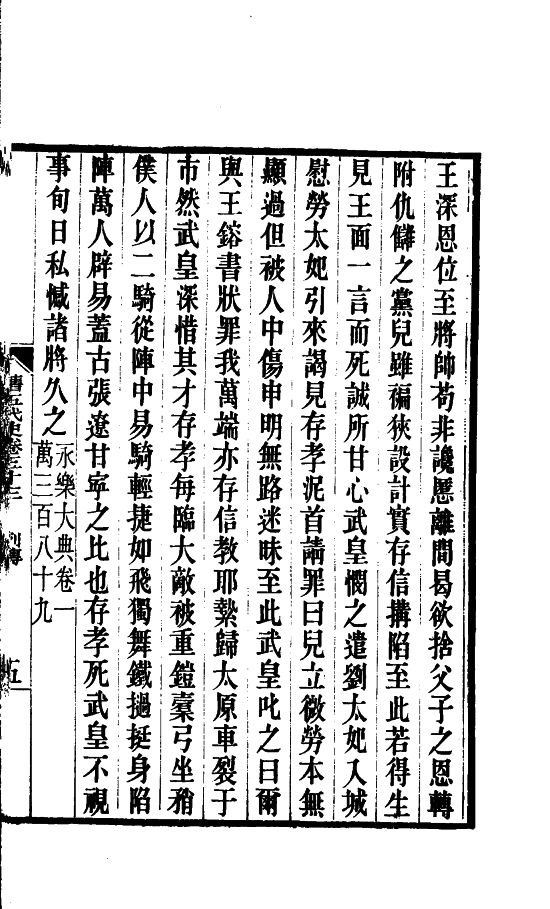 王深恩位至將帥苟非讒慝離間曷欲捨父子之恩轉
附仇讎之黨兒雖褊狹設計實存信搆陷至此若得生
見王面一言而死誠所甘心武皇憫之遣劉太妃入城
慰勞太妃引來謁見存孝泥首請罪曰兒立微勞本無
顯過但被人中傷申明無路迷昧至此武皇叱之曰爾
與王鎔書狀罪我萬端亦存信教耶縶歸太原車裂于
市然武皇深惜其才存孝每臨大敵被重鎧櫜弓坐矟
僕人以二騎從陣中易騎輕捷如飛獨舞鐵撾挺身陷
陣萬人辟易蓋古張遼甘寧之比也存孝死武皇不視
事旬日私憾諸將久之永樂大典卷一
萬三百八十九
舊五代史卷五十三 列傳 五